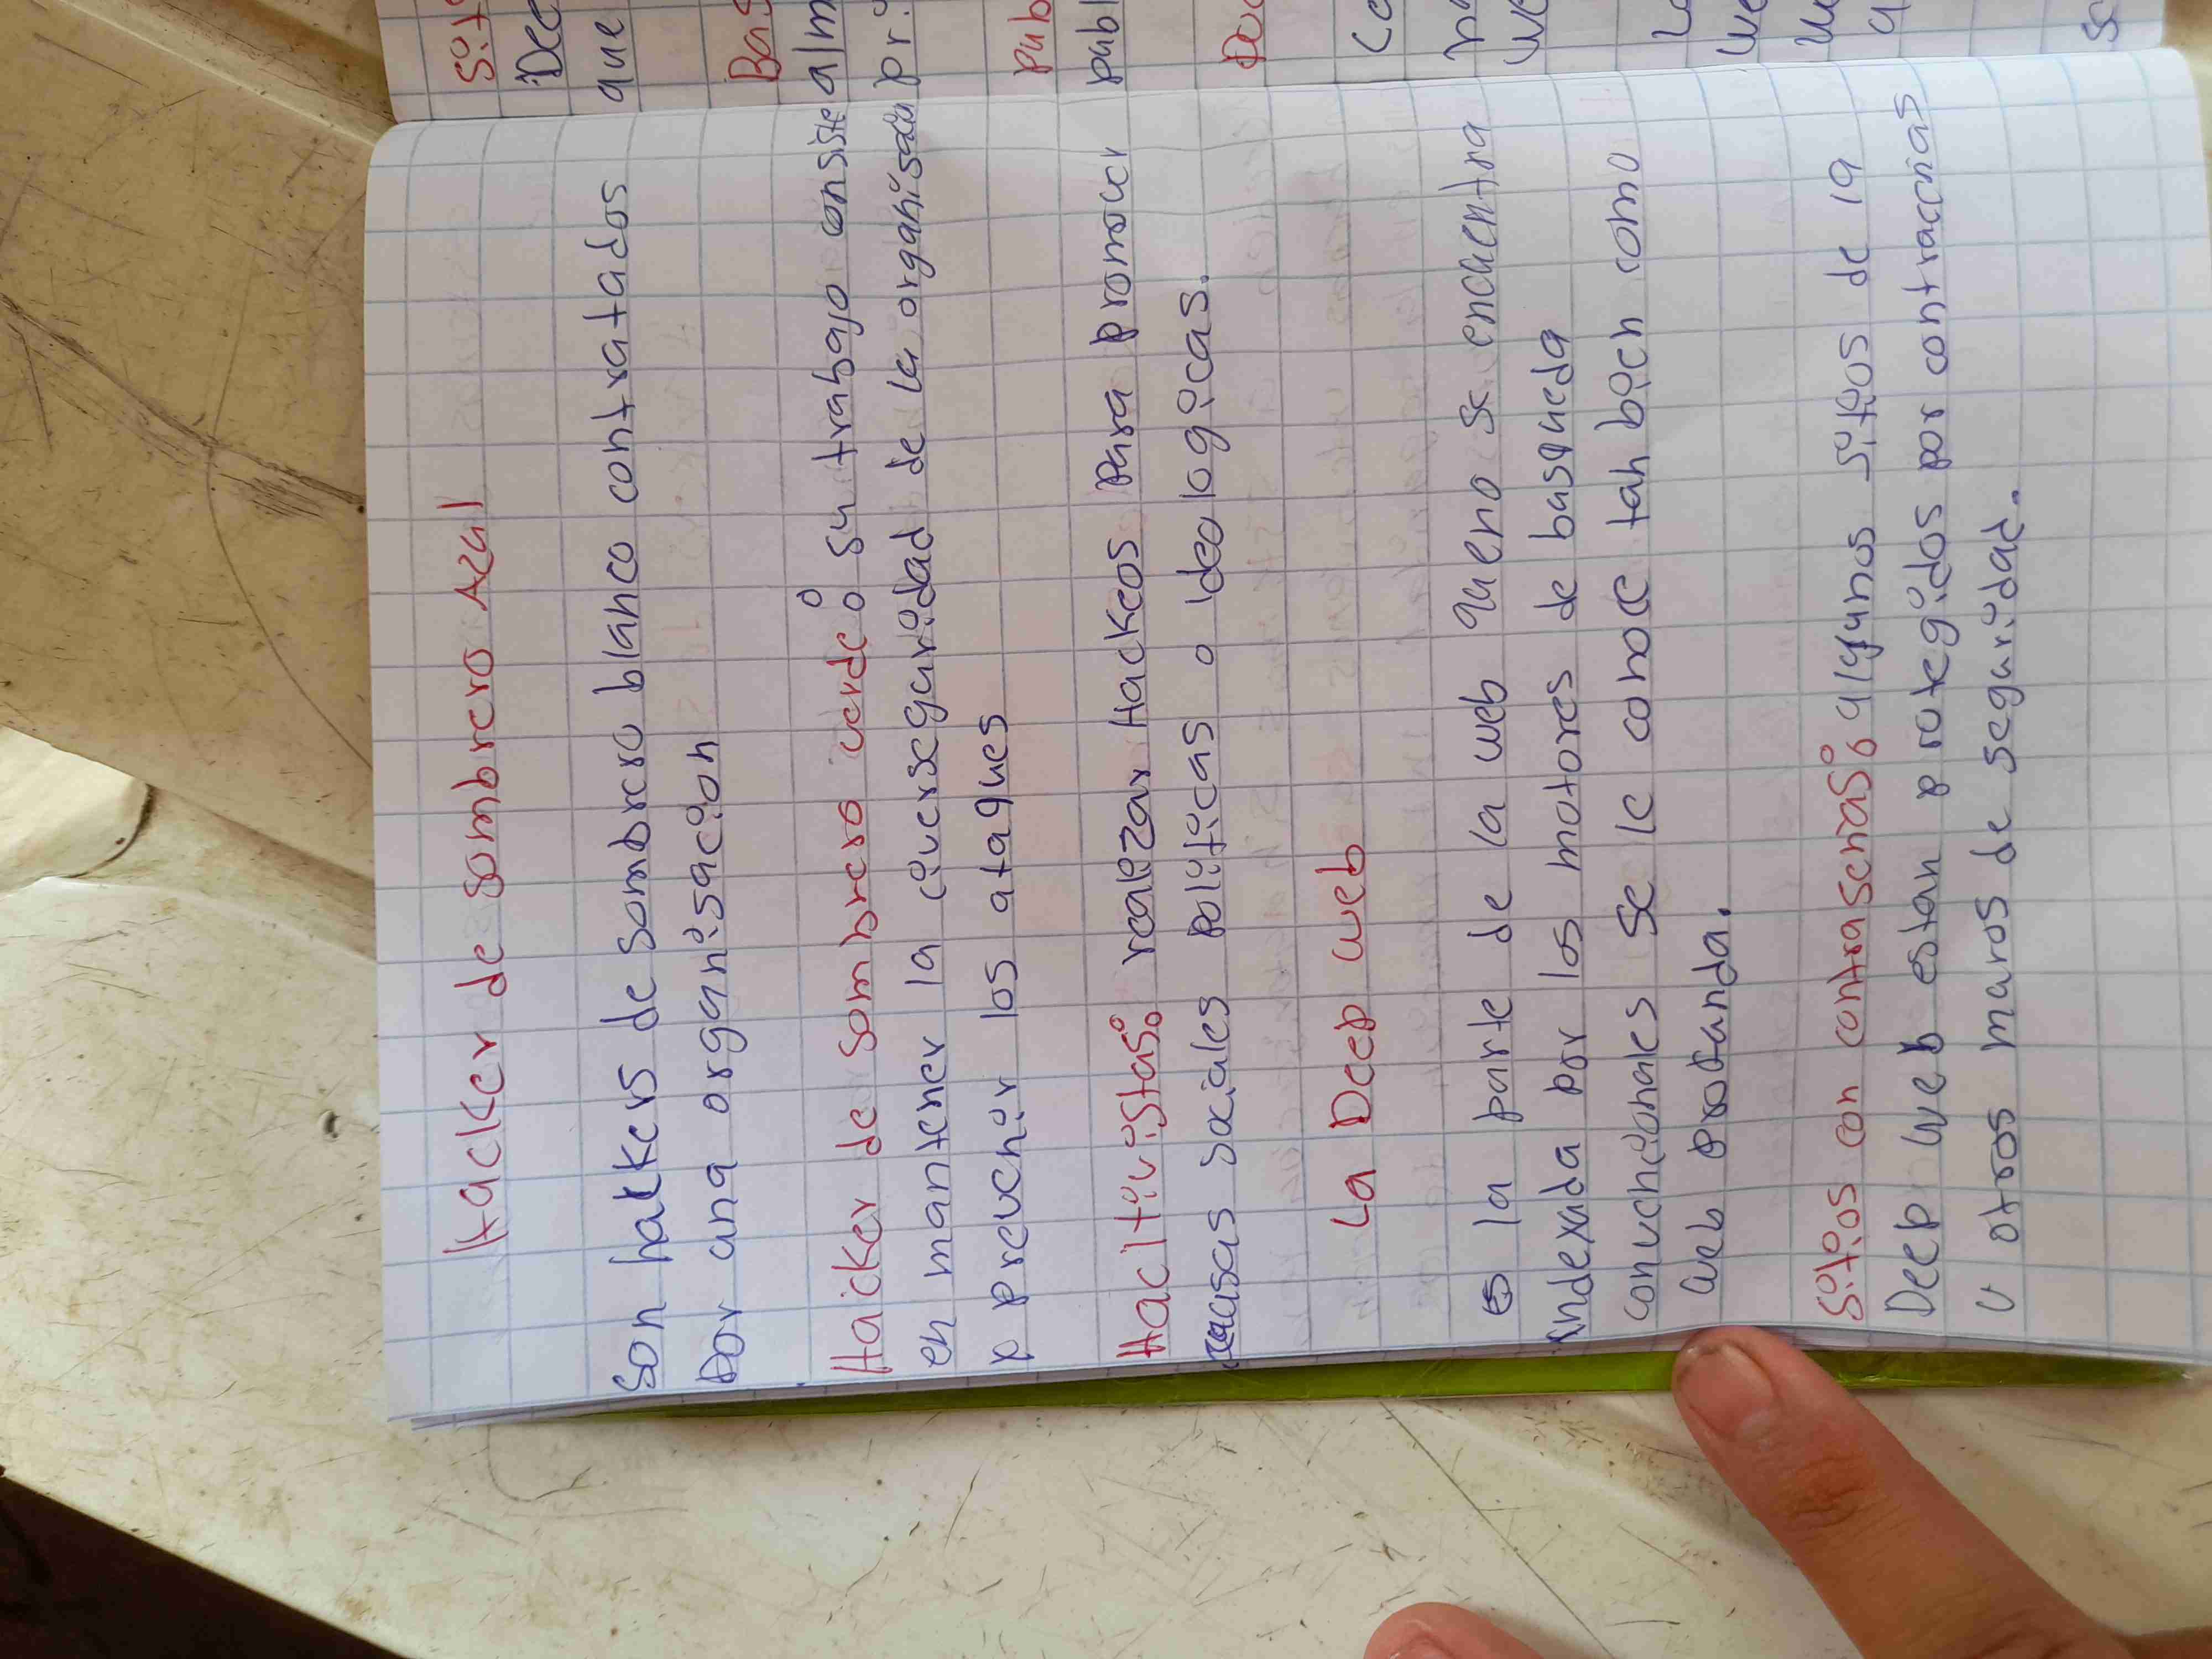 Hacker de sombrero Azul
Son hakers de sombrero blanco contratados
por una organisacion
Hacker de sombrero verde: su trabajo consiste
en mantener la civerseguridad de la organisacion
p prevenir los ataques
Hacltivistas: realizar Hackeos para promover
causas sociales politicas o ideologicas.
La Deep web
es la parte de la web que no se encuentra
indexada por los motores de busqueda
convencionales se le conoce tan bien como
web profunda.
Sitios con contraseñas: algunos sitios de la
Deep web estan protegidos por contraceñas
u otros muros de seguridad.
Sit
Dee
que
Bas
alm
pri
pub
publ